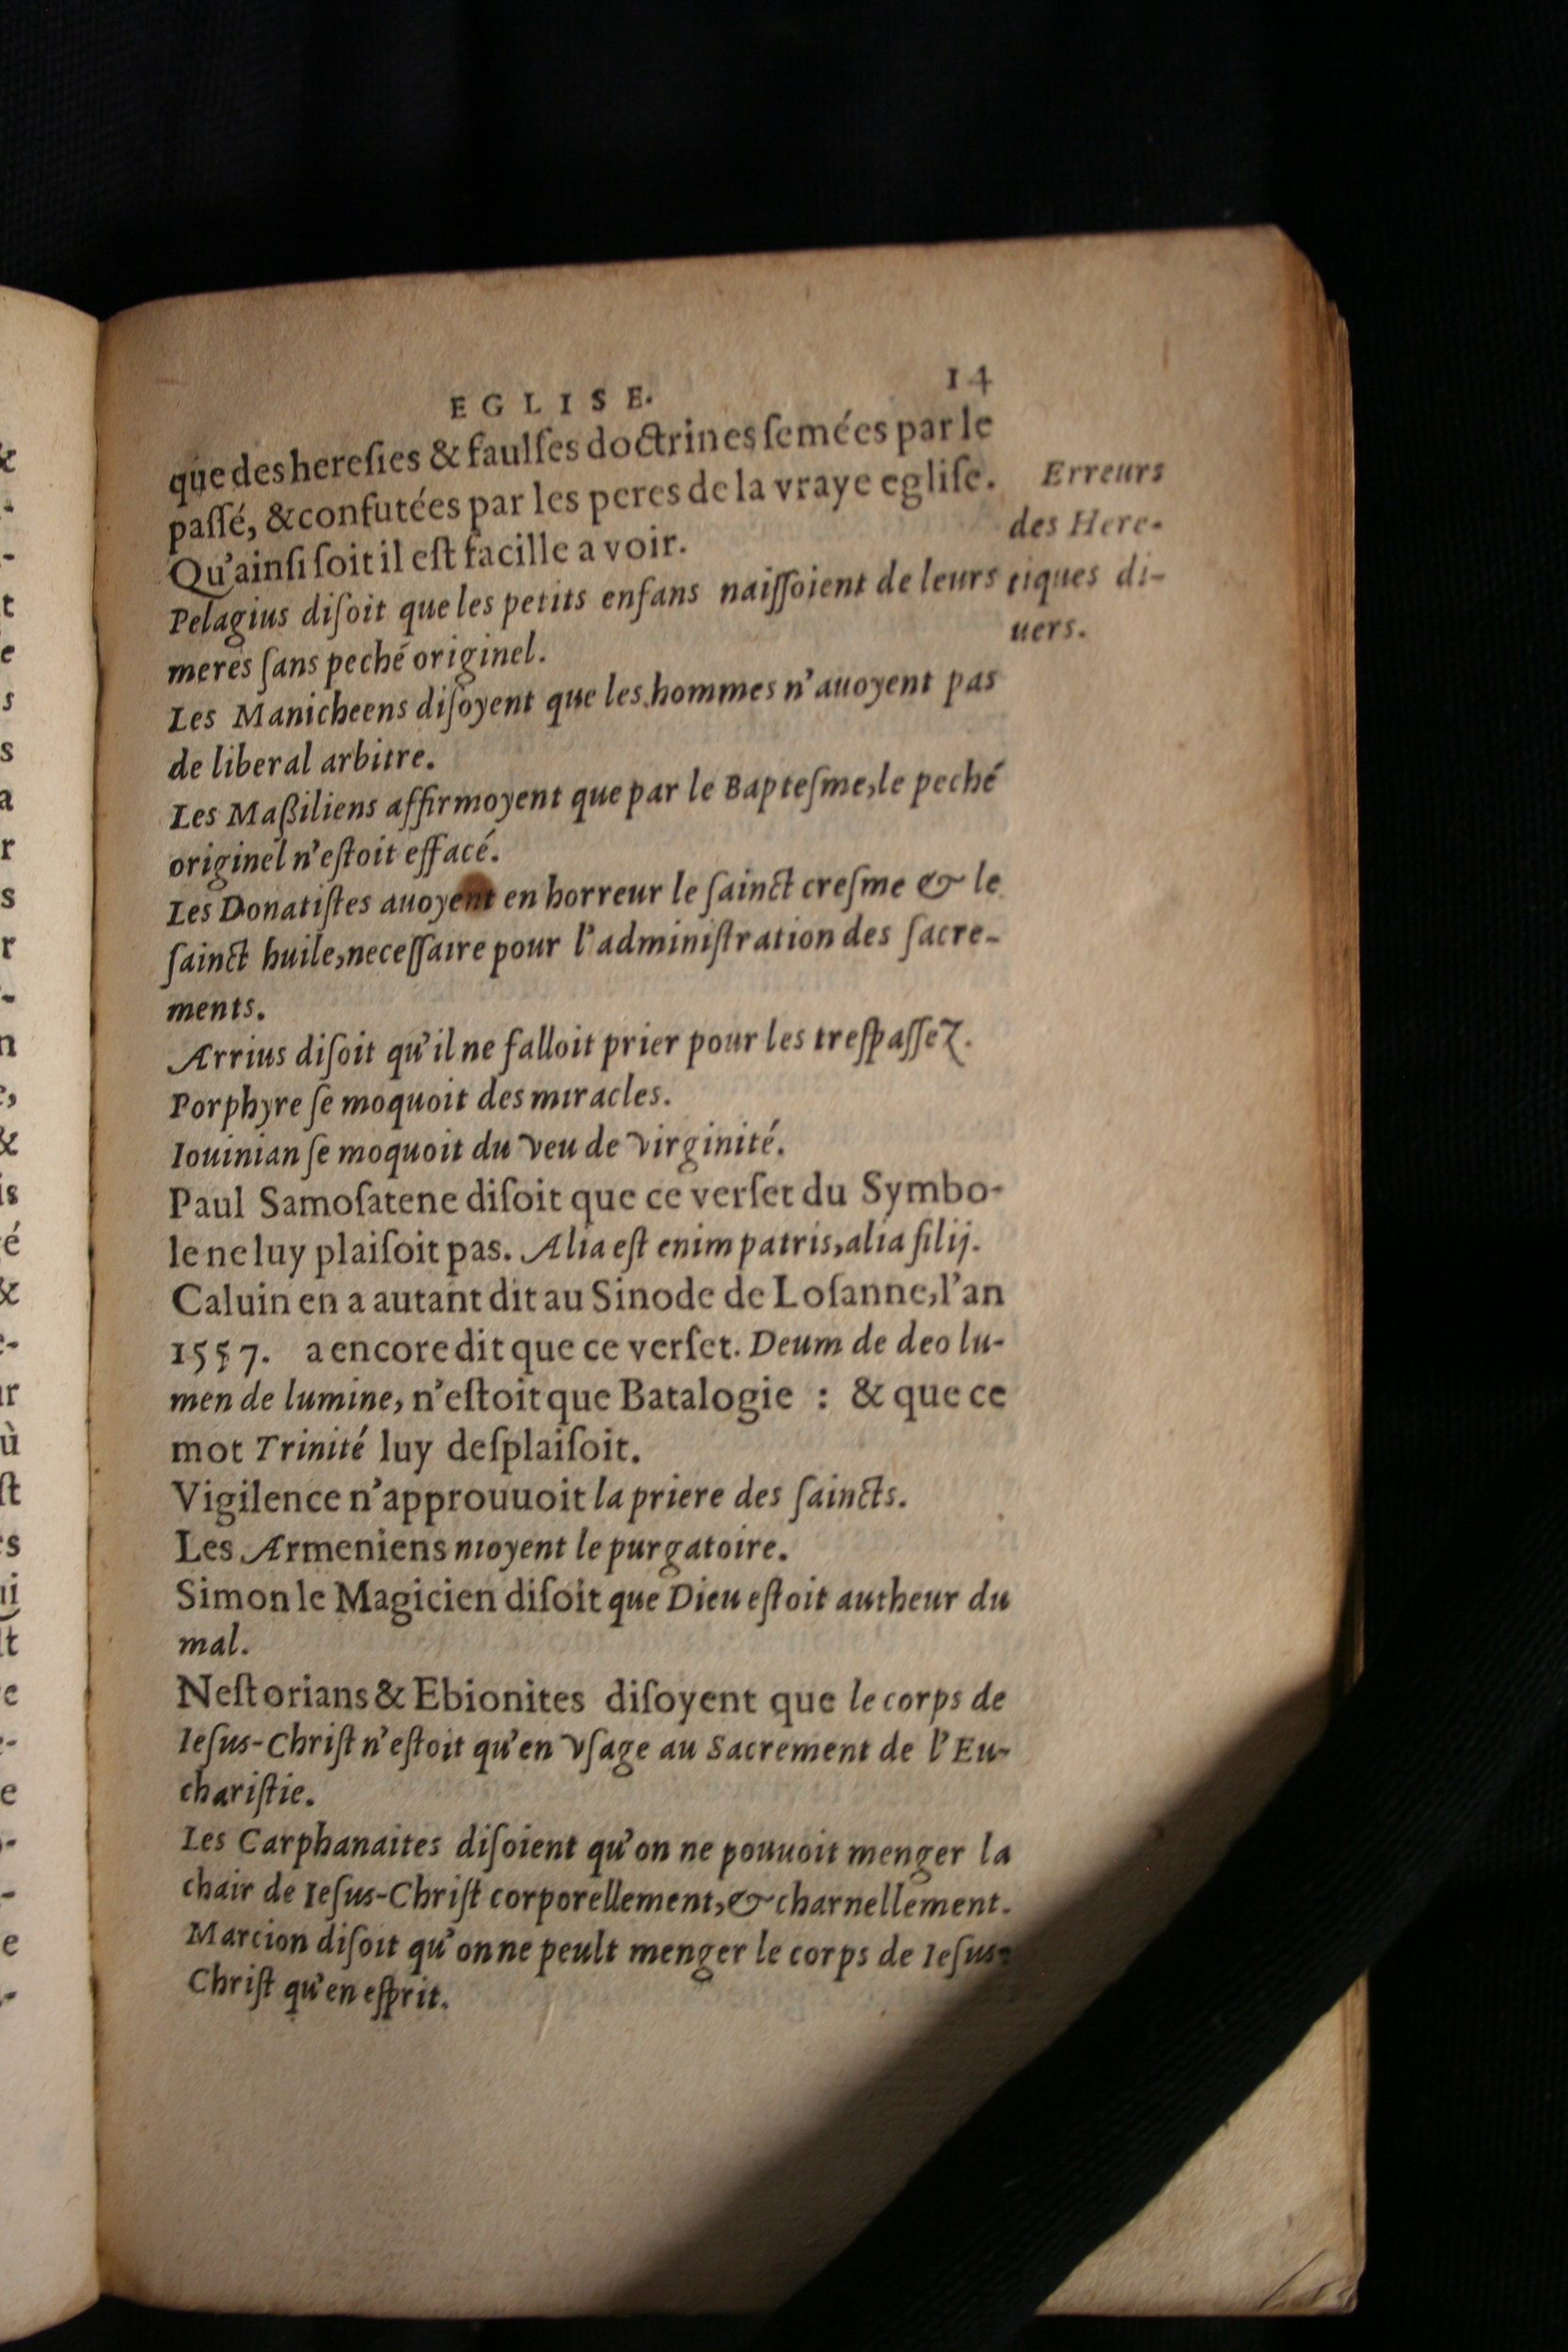 EGLISE. 14
que des hereſies & faulſes doctrines ſemées par le
paſſé, & confutées par les peres de la vraye egliſe.
Qu'ainſi ſoit il eſt facille a voir.
Erreurs
des Here-
tiques di-
uers.
Pelagius diſoit que les petits enfans naiſſoient de leurs
meres ſans peché originel.
Les Manicheens diſoyent que les hommes n'auoyent pas
de liberal arbitre.
Les Maßiliens affirmoyent que par le Bapteſme, le peché
originel n'eſtoit effacé.
Les Donatiſtes auoyent en horreur le ſainct creſme & le
ſainct huile, neceſſaire pour l'adminiſtration des ſacre-
ments.
Arrius diſoit qu'il ne falloit prier pour les treſpaſſez.
Porphyre ſe moquoit des miracles.
Iouinian ſe moquoit du veu de virginité.
Paul Samoſatene diſoit que ce verſet du Symbo-
le ne luy plaiſoit pas. Alia eſt enim patris, alia filij.
Caluin en a autant dit au Sinode de Loſanne, l'an
1557. a encore dit que ce verſet. Deum de deo lu-
men de lumine, n'eſtoit que Batalogie : & que ce
mot Trinité luy deſplaiſoit.
Vigilence n'approuuoit la priere des ſaincts.
Les Armeniens nioyent le purgatoire.
Simon le Magicien diſoit que Dieu eſtoit autheur du
mal.
Neſtorians & Ebionites diſoyent que le corps de
Ieſus-Chriſt n'eſtoit qu'en vſage au Sacrement de l'Eu-
chariſtie.
Les Carphanaites diſoient qu'on ne pouuoit menger la
chair de Ieſus-Chriſt corporellement, & charnellement.
Marcion diſoit qu'on ne peult menger le corps de Ieſus-
Chriſt qu'en eſprit.